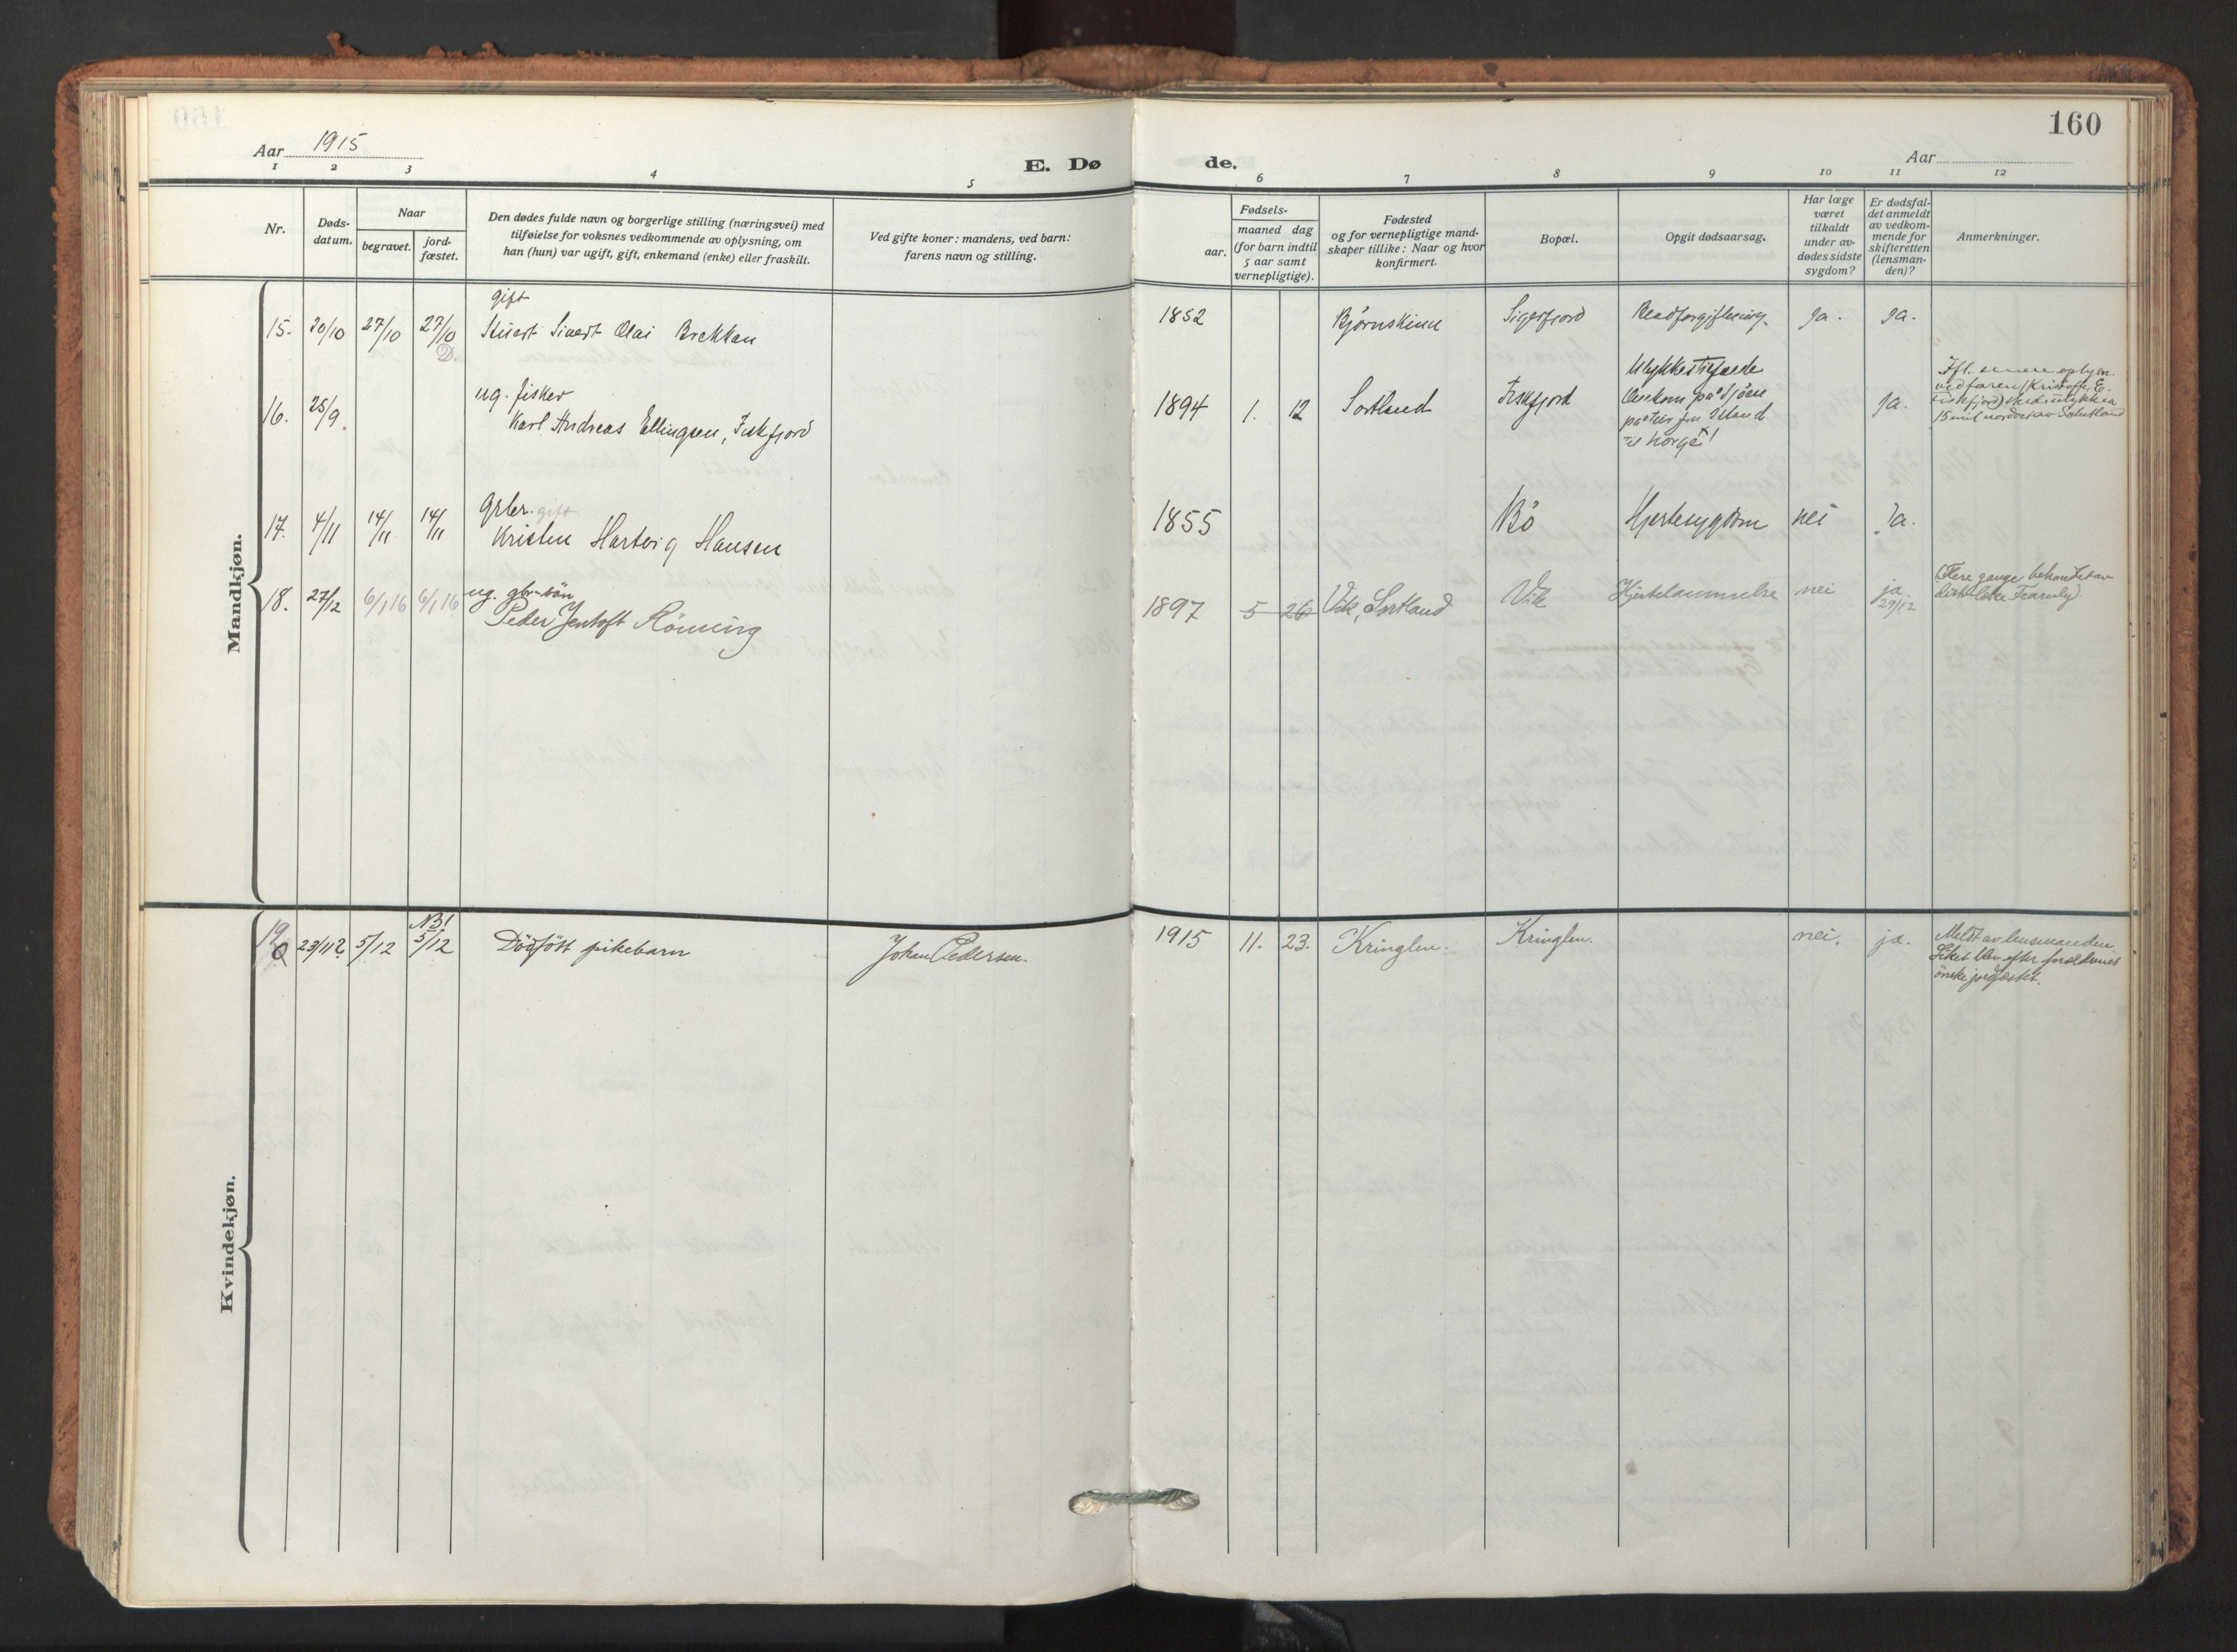 160
Aar 1915
E. Dø
de.
Aar
1 2 3 4 5
6 7 8 9 10 11 12
Nr.
Døds-
datum.
Naar
begravet.
jord-
fæstet.
Den dødes fulde navn og borgerlige stilling (næringsvei) med
tilføielse for voksnes vedkommende av oplysning, om
han (hun) var ugift, gift, enkemand (enke) eller fraskilt.
Ved gifte koner: mandens, ved barn:
farens navn og stilling.
Fødsels-
aar.
maaned dag
(for barn indtil
5 aar samt
vernepligtige).
Fødested
og for vernepligtige mand-
skaper tillike: Naar og hvor
konfirmert.
Bopæl.
Opgit dødsaarsag.
Har læge
været
tilkaldt
under av-
dødes sidste
sygdom?
Er dødsfal-
det anmeldt
av vedkom-
mende for
skifteretten
(lensman-
den)?
Anmerkninger.
Mandkjøn.
gift
15. 20/10 27/10 27/10 Sivert Olai Brekkan 1852 Bjørnskinn Sigerfjord Blodforgiftning. Ja. Ja.
D.
ug. fisker
16. 25/9. Karl Andreas Ellingsen, Fiskfjord 1894 1. 12 Sortland Fiskfjord Ja.
Ulykkestilfælde
Omkom paa Sjøen
paa Tur fra Island
til Norge!
Ifl. senere oplysn.
ved faren (Kristoffer E.
Fiskfjord) skedde ulykken
15 mil nordost av Shetland
Grbr. gift
17. 4/11 14/11 14/11 Kristen Hartvig Hansen 1855 Bö Hjertesygdom nei Ja.
ug. gbr-sön
18. 27/12 6/1 16 6/1 16 Peder Jentoft Rönning 1897 5 26 Vik, Sortland Vik Hjertelammelse nei ja 29/12
(Flere gange behandlet av
distr.læke Fearnly)
Kvindekjøn.
NB!
19 0 23/11? 5/12 5/12 Dödfött pikebarn Johan Pedersen. 1915 11. 23. Kringlen. Kringlen. nei. ja.
Meldt av lensmanden
Liket blev efter forældrenes
önske jordfæstet.